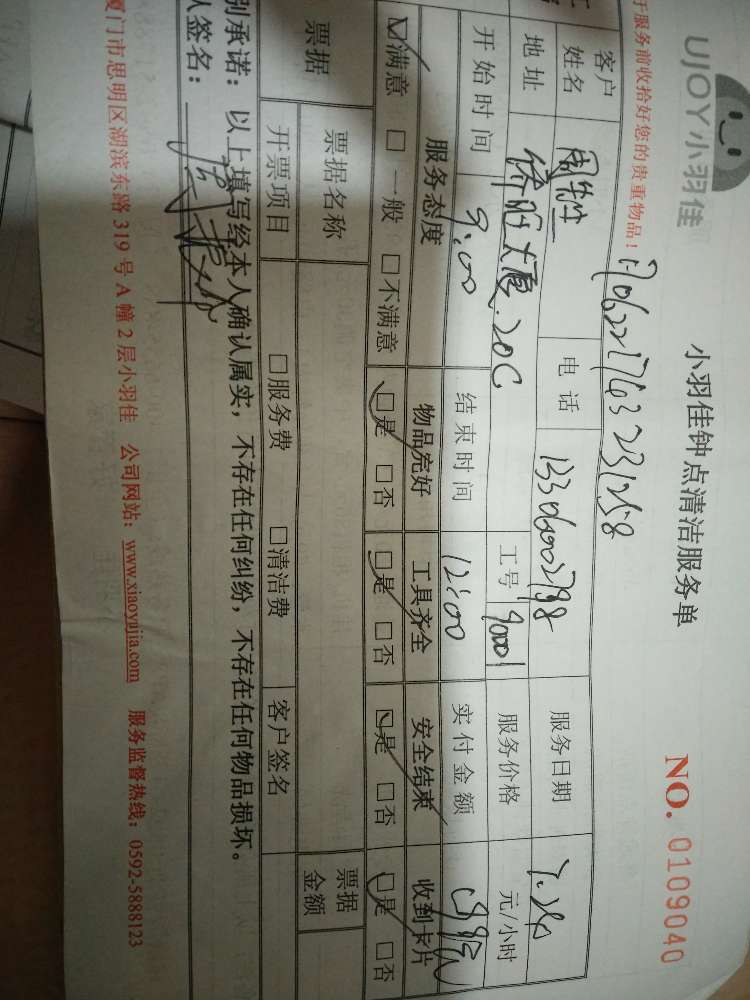 UJOY小羽佳
小羽佳钟点清洁服务单
NO. 0109040
于服务前收拾好您的贵重物品!
客户姓名 电话 服务日期
地址 侨旺大厦.20C 工号 90001 服务价格 元/小时
开始时间 9:00 结束时间 12:00 实付金额
服务态度 物品完好 工具齐全 安全结束 收到卡片
☑满意 □一般 □不满意 ☑是 □否 ☑是 □否 ☑是 □否 ☑是 □否
票据 票据名称 票据金额
开票项目 □服务费 □清洁费 客户签名
别承诺: 以上填写经本人确认属实, 不存在任何纠纷, 不存在任何物品损坏。
人签名:
厦门市思明区湖滨东路 319 号 A 幢 2 层小羽佳 公司网站: www.xiaoyujia.com 服务监督热线: 0592-5888123